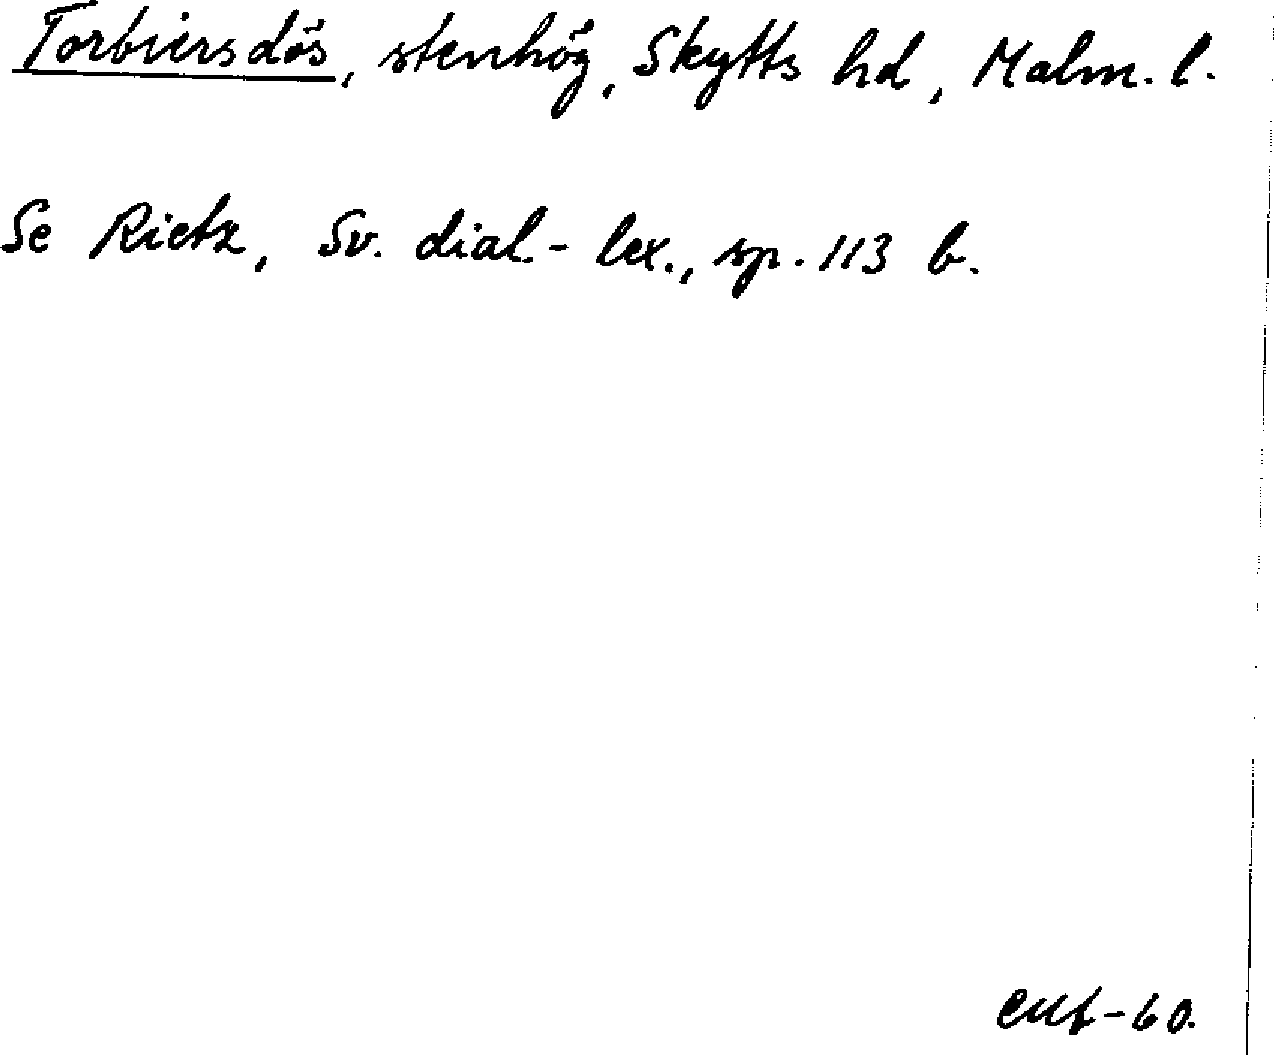 Torbiersdös, stenhög, Skytts hd, Malm. l.
Se Rietz, Sv. dial.-lex., sp. 113 b.
-60.